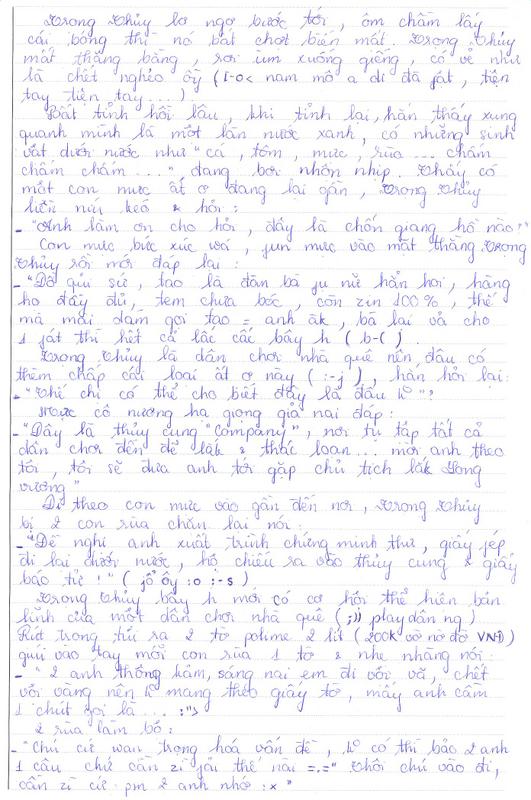 Trọng Thủy lơ ngơ bước tới, ôm chầm lấy
cái bóng thì nó bất chợt biến mất. Trọng Thủy
mất thăng bằng, rơi ùm xuống giếng, có vẻ như
là chết nghẻo ồỹ (I-O< nam mô a di đà fật, tiện
tay tiện tay...)
Bất tỉnh hồi lâu, khi tỉnh lại, hắn thấy xung
quanh mình là một làn nước xanh, có những sinh
vật dưới nước như "cá, tôm, mực, rùa... chấm
chấm chấm...", đang bơi nhộn nhịp. Thấy có
một con mực ất ơ đang lại gần, Trọng Thủy
liền níu kéo & hỏi:
- "Anh làm ơn cho hỏi, đây là chốn giang hồ nào?"
Con mực bức xúc wá, fun mực vào mặt thằng Trọng
Thủy rồi mới đáp lại:
- "Đồ quỉ sứ, tao là đàn bà fụ nữ hẳn hoi, hàng
họ đầy đủ, tem chưa bóc, còn zin 100%, thế
mà mài dám gọi tao = anh àk, bà lại vả cho
1 fát thì hết cả lấc cấc bây h (b-()
Trọng Thủy là dân chơi nhà quê nên đâu có
thèm chấp cái loại ất ơ này (:-j), hắn hỏi lại:
- "Thế chị có thể cho biết đây là đâu ko"?
Mực cô nương hạ giọng giả nai đáp:
- "Đây là thủy cung "Company", nơi tụ tập tất cả
dân chơi đến để lắk & thác loạn... mời anh theo
tôi, tôi sẽ đưa anh tới gặp chủ tịch lắk Long
Vương"
Đi theo con mực vào gần đến nơi, Trọng Thủy
bị 2 con rùa chặn lại nói:
- "Đề nghị anh xuất trình chứng minh thư, giấy fép
đi lại dưới nước, hộ chiếu ra vào thủy cung & giấy
báo tử!" (jồ ôy :o :-s)
Trọng Thủy bây h mới có cơ hội thể hiện bản
lĩnh của một dân chơi nhà quê (;)) playdân ng)
Rút trong túi ra 2 tờ polime 2 lít (200k vờ nờ đờ VNĐ)
gúi vào tay mỗi con rùa 1 tờ & nhẹ nhàng nói:
- "2 anh thông kảm, sáng nai em đi vội vã, chết
vội vàng nên ko mang theo giấy tờ, mấy anh cầm
1 chút gọi là... :">
2 rùa làm bộ:
- "Chú cứ wan trọng hoá vấn đề, ko có thì bảo 2 anh
1 câu chứ cần zì fải thế nài =.=" Thôi chú vào đi,
cần zì cứ pm 2 anh nhớ :x"